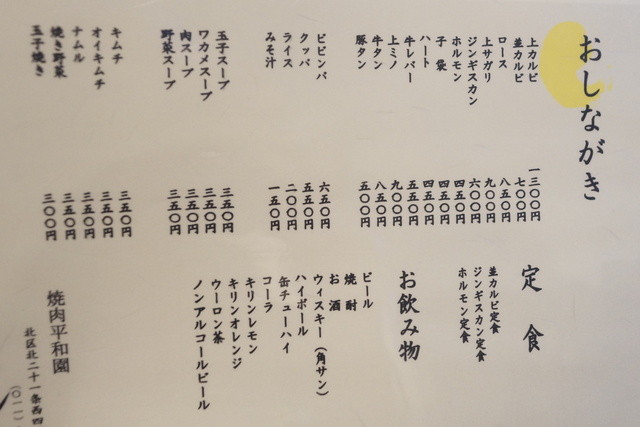 おしながき
上カルビ 一三〇〇円
並カルビ 七〇〇円
ロース 八五〇円
上サガリ 九〇〇円
ジンギスカン 六〇〇円
ホルモン 四五〇円
子袋 四五〇円
ハート 四五〇円
牛レバー 五五〇円
上ミノ 九〇〇円
牛タン 八五〇円
豚タン 五〇〇円
ビビンバ 六五〇円
クッパ 五五〇円
ライス 二〇〇円
みそ汁 一五〇円
玉子スープ 三五〇円
ワカメスープ 三五〇円
肉スープ 三五〇円
野菜スープ 三五〇円
キムチ 三五〇円
オイキムチ 三五〇円
ナムル 三五〇円
焼き野菜 三五〇円
玉子焼き 三〇〇円
定食
並カルビ定食
ジンギスカン定食
ホルモン定食
お飲み物
ビール
焼酎
お酒
ウィスキー（角サン）
ハイボール
缶チューハイ
コーラ
キリンレモン
キリンオレンジ
ウーロン茶
ノンアルコールビール
焼肉平和園
北区北二十一条西四
（〇一一